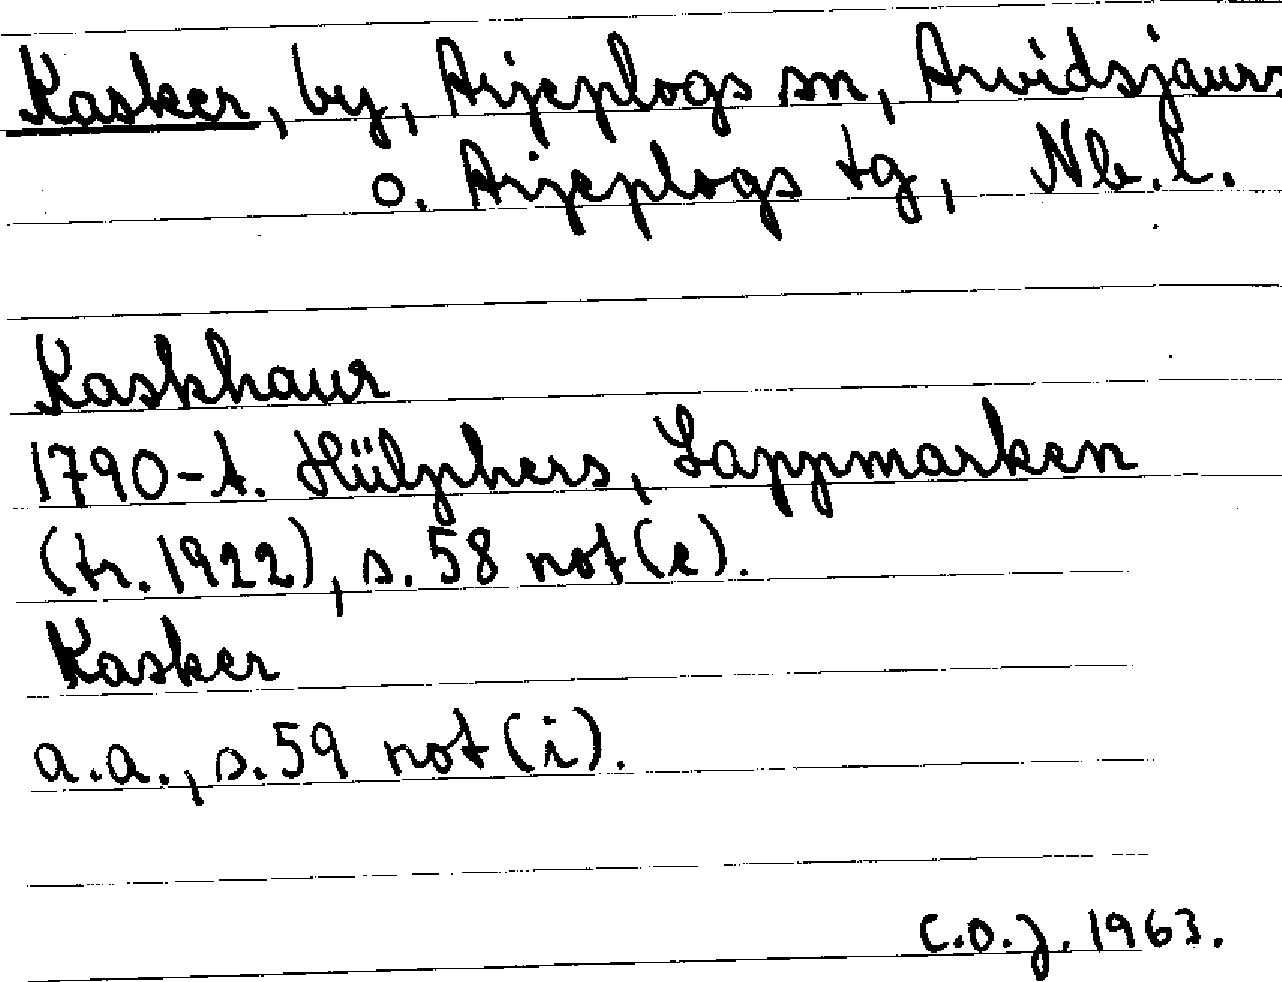 Kasker, by, Arjeplogs sn, Arvidsjaurs
o. Arjeplogs tg, Nb.l.
Kaskhaur
1790-t. Hülphers, Lappmarken
(tr. 1922), s. 58 not (e).
Kasker
a.a., s. 59 not (i).
C.O.J. 1963.